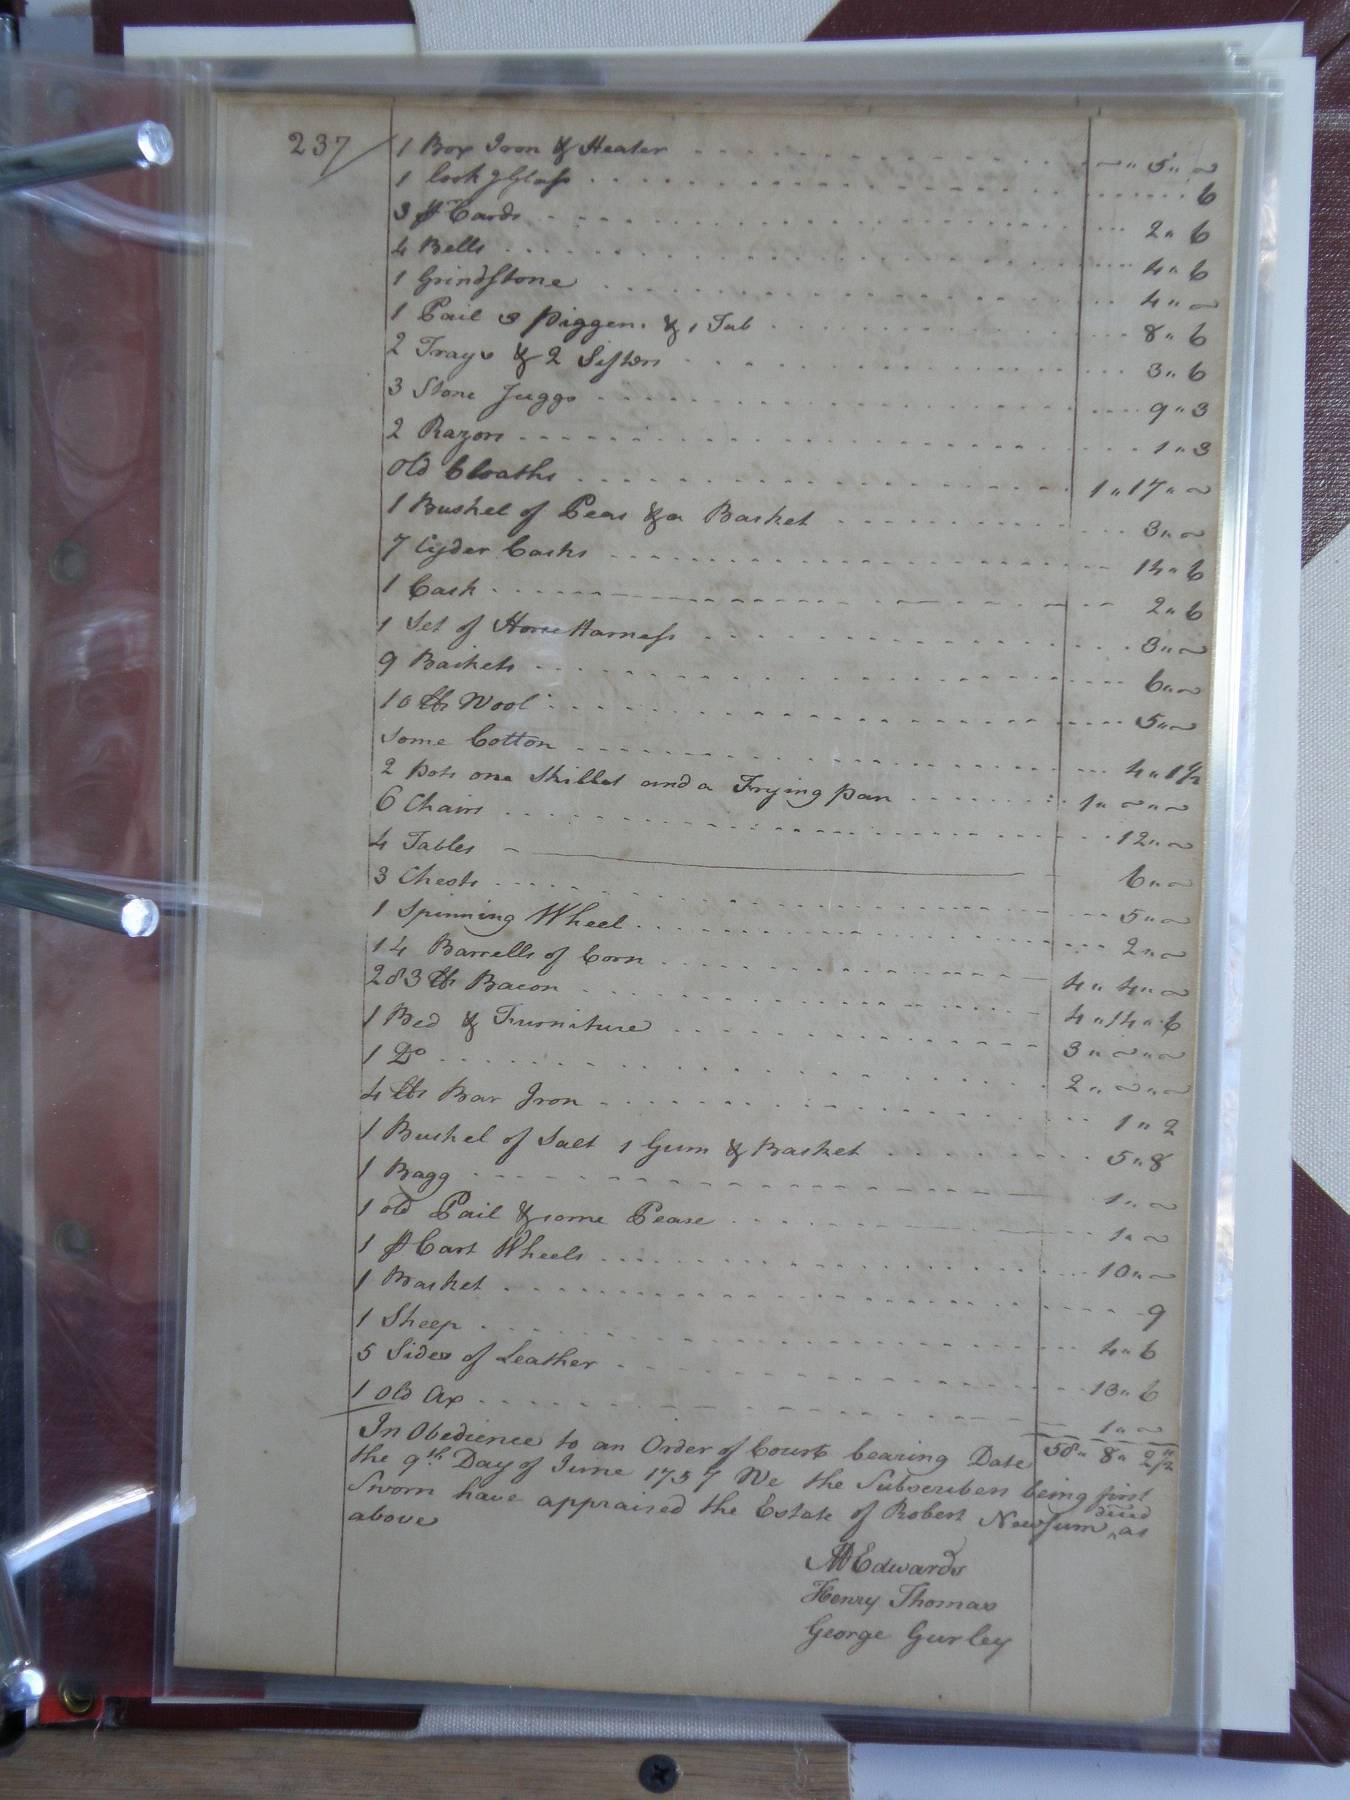 237
1 Box Iron & Heater ~ " 5 " ~
1 look g Glass 6
3 pr Cards 2 " 6
4 Bells 4 " 6
1 Grindstone 4 " ~
1 Pail 3 piggen. & 1 Tub 8 " 6
2 Trays & 2 Sifters 3 " 6
3 Stone Juggs 9 " 3
2 Razors 1 " 3
Old Cloaths 1 " 17 " ~
1 Bushel of Peas & a Basket 3 " ~
7 Cyder Casks 14 " 6
1 Cask 2 " 6
1 Set of Horse Harness 3 " ~
9 Baskets 6 " ~
10 lb Wool 5 " ~
Some Cotton 4 " 1 1/2
2 pots one Skillet and a Frying pan 1 " ~ " ~
6 Chairs 12 " ~
4 Tables 6 " ~
3 Chests 5 " ~
1 Spinning Wheel 2 " ~
14 Barrells of Corn 4 " 4 " ~
283 lb Bacon 4 " 14 " 6
1 Bed & Furniture 3 " ~ " ~
1 Do 2 " ~ " ~
4 lb Bar Iron 1 " 2
1 Bushel of Salt 1 Gum & Basket 5 " 8
1 Bagg 1 " ~
1 old Pail & some Pease 1 " ~
1 pr Cart Wheels 10 " ~
1 Basket 9
1 Sheep 4 " 6
5 Sides of Leather 13 " 6
1 Old Ax 1 " ~
58 " 8 " 2 1/2
In Obedience to an Order of Court bearing Date
the 9th Day of June 1757 We the Subscribers being first
Sworn have appraised the Estate of Robert Newsum deced as
above
Henry Thomas
George Gurley